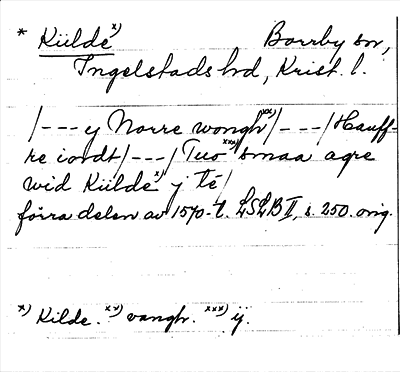 * Külde x) Borrby sn,
Ingelstads hd, Krist. l.
/---y Norre wongh xx)/---/Hauff-
re iordt/---/Tuo xxx) smaa agre
wid Külde x) ÿ té/
förra delen av 1570-t. LSLB II, s. 250. orig.
x) Kilde. xx) vangh. xxx) ij.